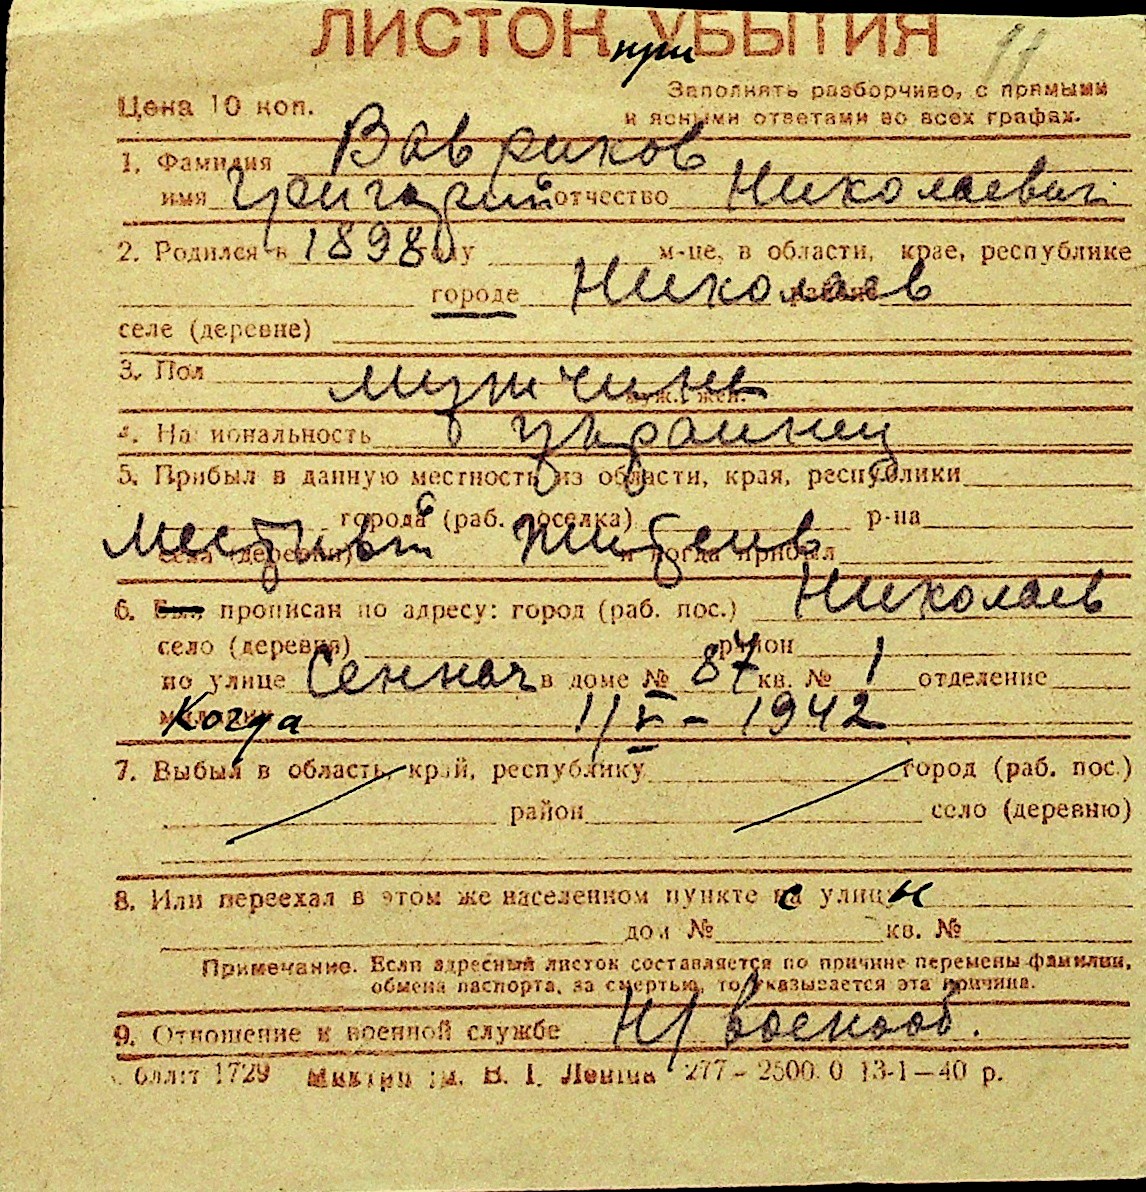 ЛИСТОК УБЫТИЯ
при
11
Цена 10 коп.
Заполнять разборчиво, с прямыми
и ясными ответами во всех графах.
1. Фамилия Вавриков
имя Григорий отчество Николаевич
2. Родился в 1898 году м-це, в области, крае, республике
городе Николаев районе
селе (деревне)
3. Пол мужчина муж., жен.
4. Национальность украинец
5. Прибыл в данную местность из области, края, республики
города (раб. поселка) р-на
местный житель
села (деревни) и когда прибыл
6. Был прописан по адресу: город (раб. пос.) Николаев
село (деревня) район
по улице Сенная в доме № 87 кв. № 1 отделение
милиции Когда 11/V - 1942
7. Выбыл в область, край, республику город (раб. пос.)
район село (деревню)
8. Или переехал в этом же населенном пункте с улицы
дом № кв. №
Примечание. Если адресный листок составляется по причине перемены фамилии,
обмена паспорта, за смертью, то указывается эта причина.
9. Отношение к военной службе Н/военооб.
1729 ім. В. І. Леніна 277 - 2500.0 13-1-40 р.